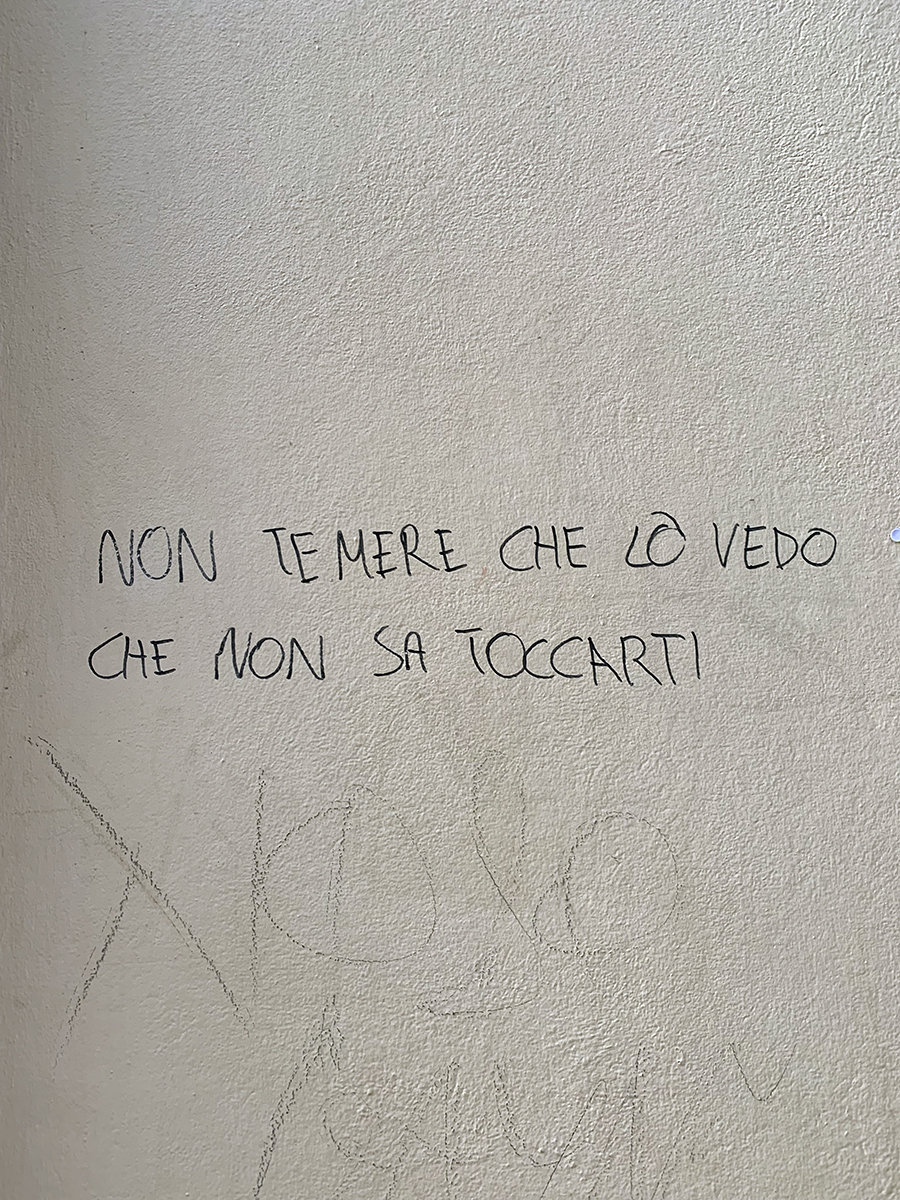 NON TEMERE CHE LO VEDO
CHE NON SA TOCCARTI